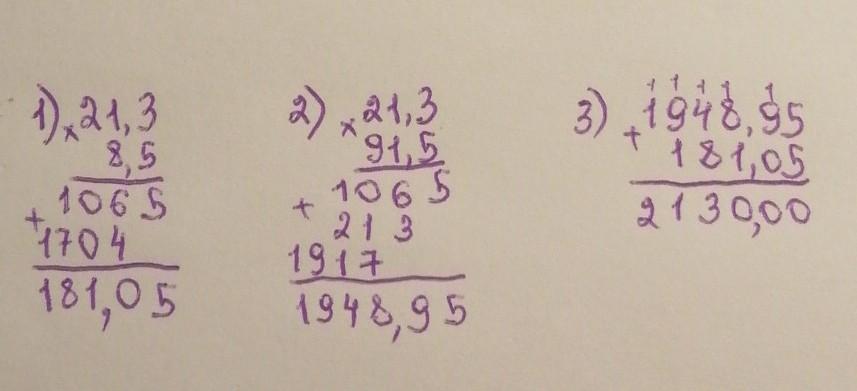 1) × 21,3
8,5
+ 1065
1704
181,05
2) × 21,3
91,5
+ 1065
213
1917
1948,95
1 1 1 1 1
3) + 1948,95
181,05
2130,00